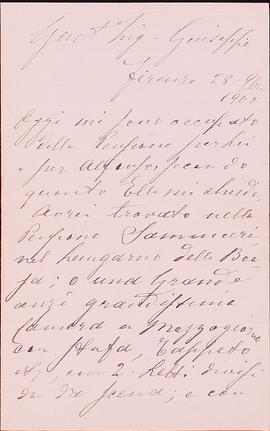 Gent. Sig. Giuseppe
Firenze 28-9bre
1900
Oggi mi sono occupato
della Pensione perchè
per Alfonso, secondo
quanto Ella mi chiede
Avrei trovato nella
Pensione
nel lungarno della Bor
sa; o una Grande
anzi grandissima
Camera a Mezzogiorno
con Stufa, Tappeto
con 2. Letti divisi
da da scena; e con